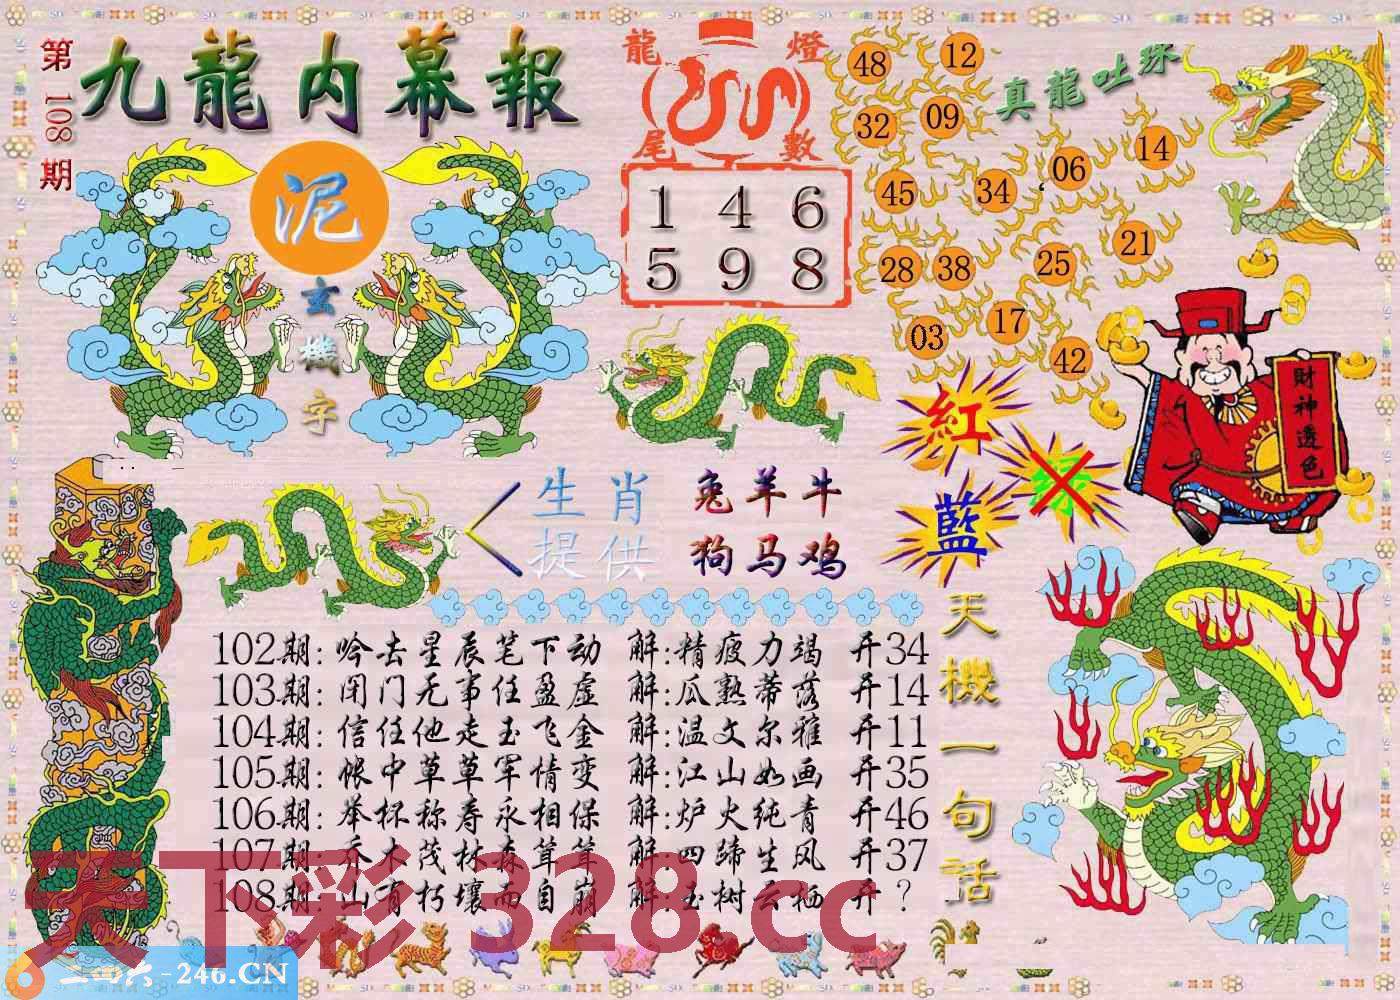 第108期
九龍内幕報
泥
玄機字
龍燈
尾數
1 4 6
5 9 8
真龍吐珠
48 12
32 09
45 34 06 14
28 38 25 21
03 17 42
財神透色
紅
绿
藍
生肖
提供
兔羊牛
狗马鸡
天機一句話
102期:吟去星辰笔下动 解:精疲力竭 开34
103期:闭门无事任盈虚 解:瓜熟蒂落 开14
104期:信任他走玉飞金 解:温文尔雅 开11
105期:帐中草草军情变 解:江山如画 开35
106期:举杯称寿永相保 解:炉火纯青 开46
107期:乔木茂林森茸茸 解:四蹄生风 开37
108期:山有朽壤而自崩 解:玉树云栖 开?
天下彩 328.cc
二四六-246.CN